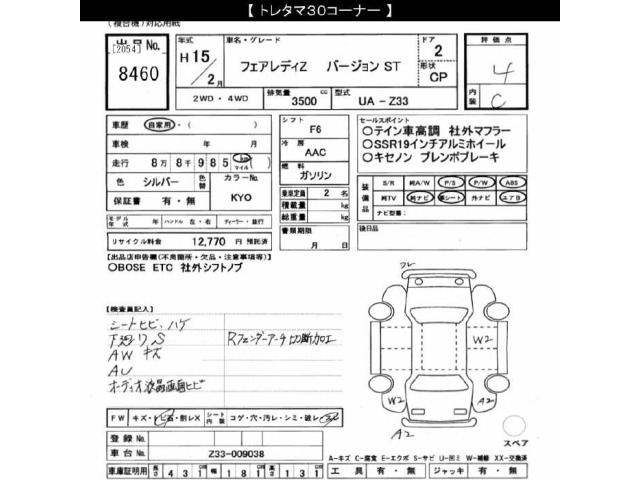 【 トレタマ30コーナー 】
(複合機) 対応用紙
出品No. [2054] 8460
年式 H 15 / 2 月
車名・グレード フェアレディZ バージョン ST
ドア 2
形状 CP
評価点 4
内装 C
2WD・4WD
排気量 3500 cc
型式 UA - Z33
車歴 自家用・( )
車検 年 月
走行 8万 8千 9 8 5 km マイル
色 シルバー 色替 カラーNo. KYO
保証書 有・無
シフト F6
冷房 AAC
燃料 ガソリン
乗車定員 2 名
積載量 kg
総重量 kg
セールスポイント
○テイン車高調 社外マフラー
○SSR19インチアルミホイール
○キセノン ブレンボブレーキ
装備品 S/R 純A/W P/S P/W ABS
純TV 純ナビ 革シート 外ナビ エアB
ナビ型番:
モデル年式 年 ハンドル 左・右 ディーラー・並行
リサイクル料金 12,770 円 預託済
書類期限 月 日
後日品
【出品店申告欄(不良箇所・欠品・注意事項等)】
○BOSE ETC 社外シフトノブ
【検査員記入】
シートヒビ・ハゲ
下廻りS
AWキズ
AU
オーディオ液晶画面ヒビ
Rフェンダーアーチ切断加工
FW キズ・ヒビ・割レX シート内装 コゲ・穴・汚レ・シミ・破レ
登録No.
車台No. Z33-009038
車庫証明用 長さ 4 3 1 幅 1 8 1 高さ 1 3 1
フレ
W2
W2
A2
A2
スペア
A−キズ C−腐食 E−エクボ S−サビ U−凹ミ W−補修 XX−交換済
工具 有・無 ジャッキ 有・無